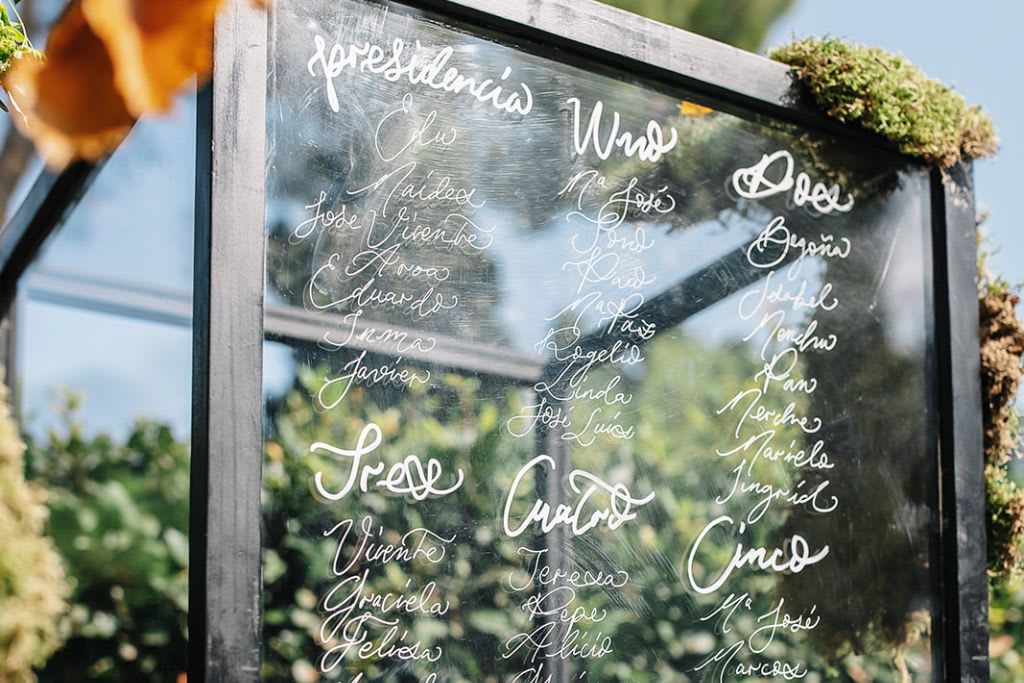 presidencia
Edu
Maider
José Vicente
Aroa
Eduardo
Inma
Javier
Uno
Mª José
Toño
Paco
Mª Paz
Rogelio
Linda
José Luis
Dos
Begoña
Isabel
Monchu
Pan
Merche
Marcelo
Ingrid
Tres
Vicente
Graciela
Felisa
Cuatro
Teresa
Pepe
Alicio
Cinco
Mª José
Marcos